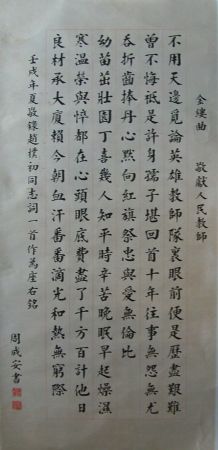 金縷曲　敬獻人民教師
不用天邊覓論英雄教師隊裏眼前便是歷盡艱難
曾不悔祗是許身孺子堪回首十年往事無怨無尤
吞折齒捧丹心默向紅旗祭忠與愛無倫比
幼苗茁壯園丁喜幾人知平時辛苦晚眠早起燥濕
寒溫榮與悴都在心頭眼底費盡了千方百計他日
良材承大廈賴今朝血汗番番滴光和熱無窮際
壬戌年夏敬錄趙樸初同志詞一首作為座右銘
周成安書